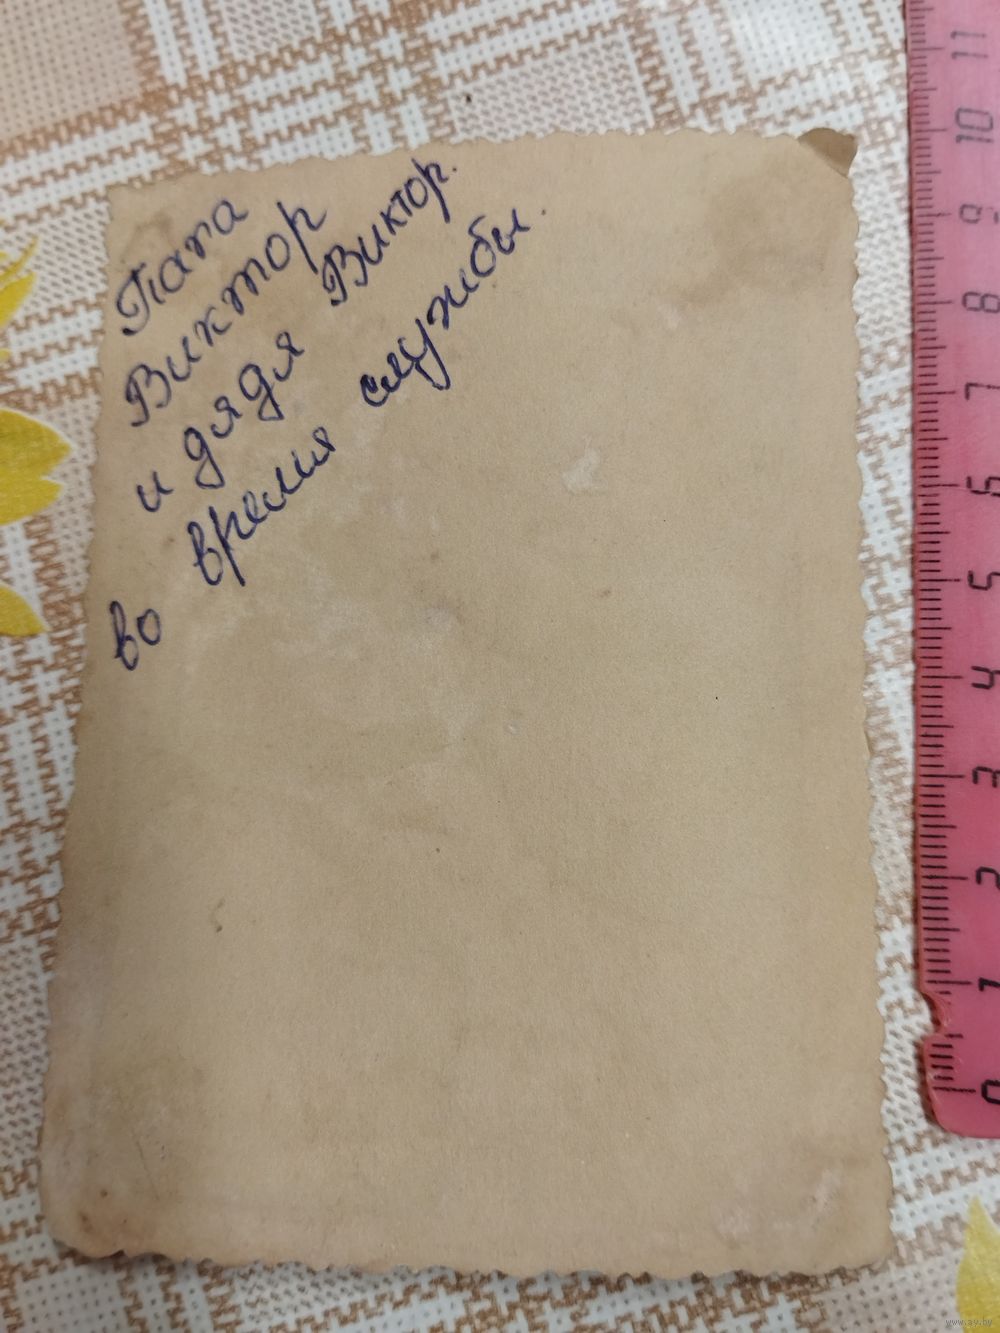 Папа
Виктор
и дядя Виктор.
во время службы.
11
10
9
8
7
6
5
4
3
2
1
0
www.ay.by